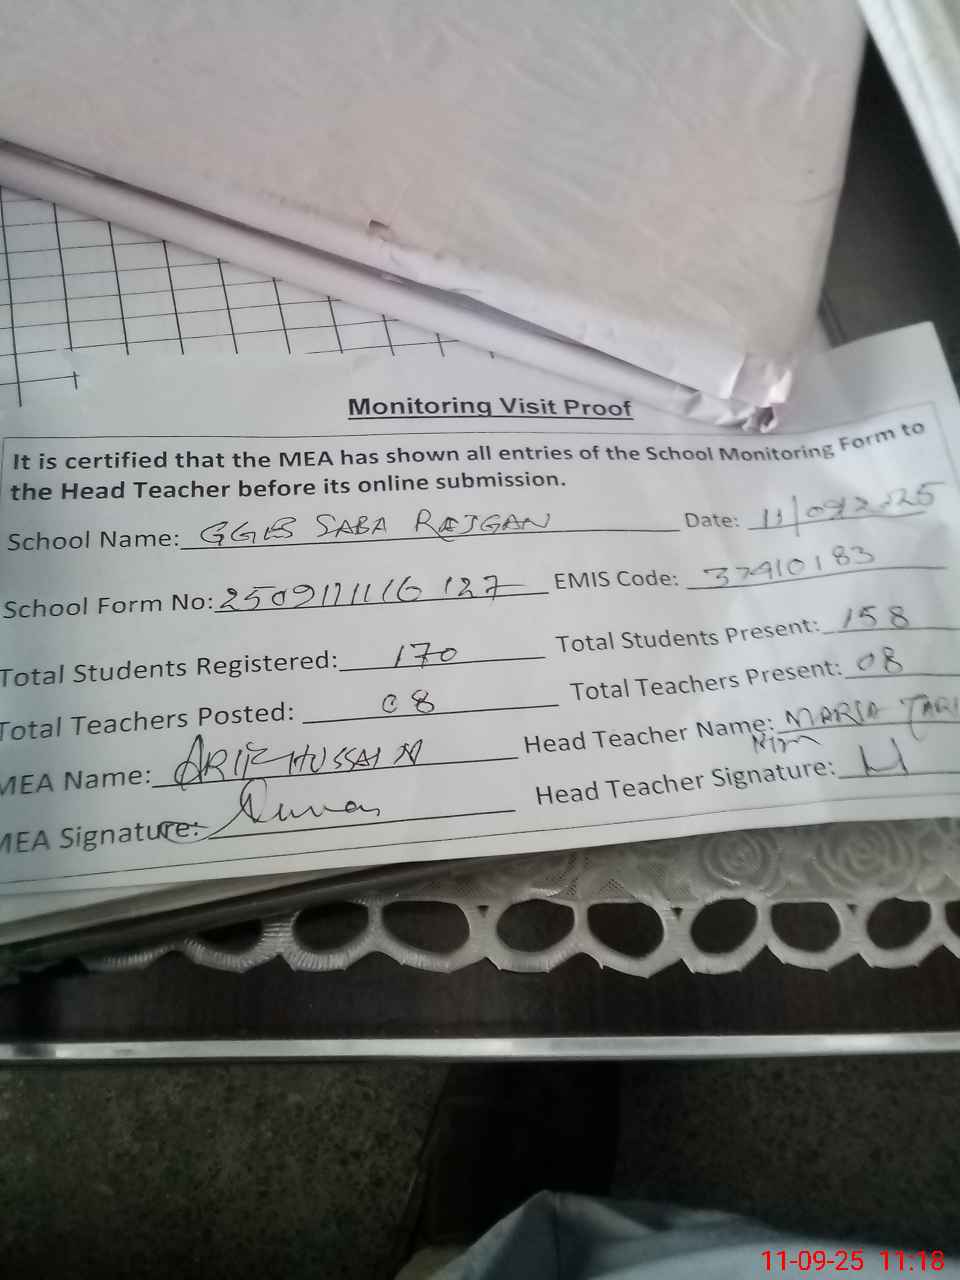 Monitoring Visit Proof
It is certified that the MEA has shown all entries of the School Monitoring Form to
the Head Teacher before its online submission.
School Name: GGES SABA RAJGAN Date: 11/09/2025
School Form No: 2509111116127 EMIS Code: 37910183
Total Students Registered: 170 Total Students Present: 158
Total Teachers Posted: 08 Total Teachers Present: 08
MEA Name: HUSSAIN Head Teacher Name: MARIA TARI
MEA Signature: Head Teacher Signature:
11-09-25 11:18